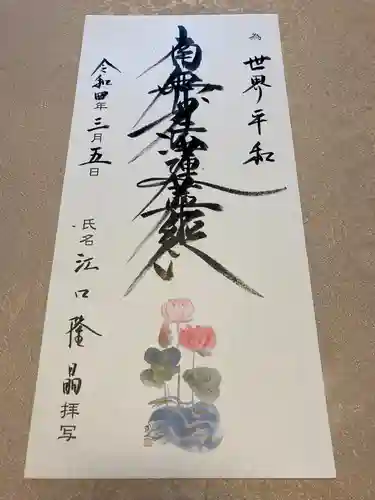 為 世界平和
南無妙法蓮華経
令和四年三月五日
氏名 江口隆晶 拝写